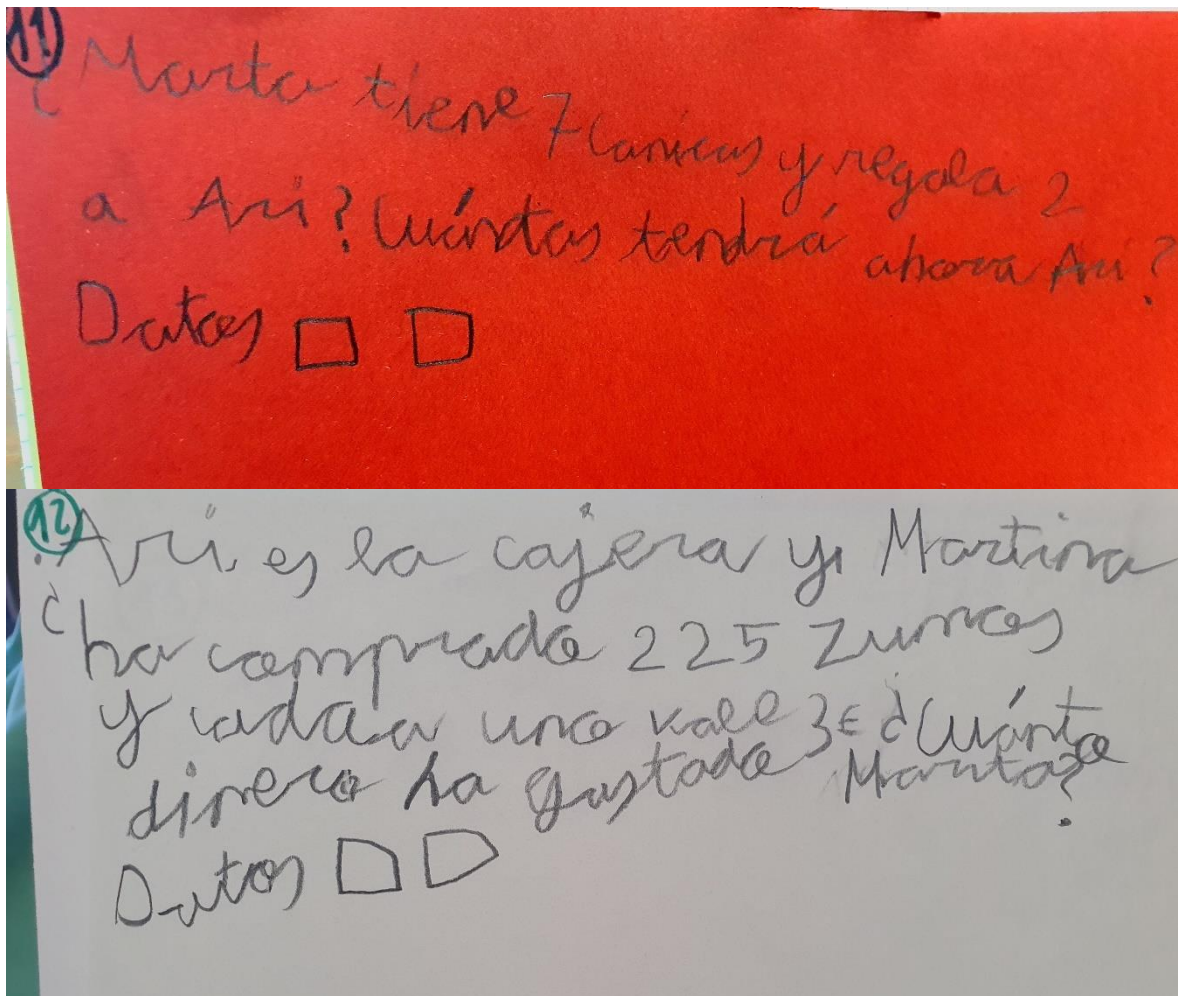 11
¿Marta tiene 7 canicas y regala 2
a Ari? Cuántas tendrá ahora Ari?
Datos
12
Ari es la cajera y Martina
¿ha comprado 225 zumos
y cada uno vale 3€ ¿Cuánto
dinero ha gastado Marta?
Datos